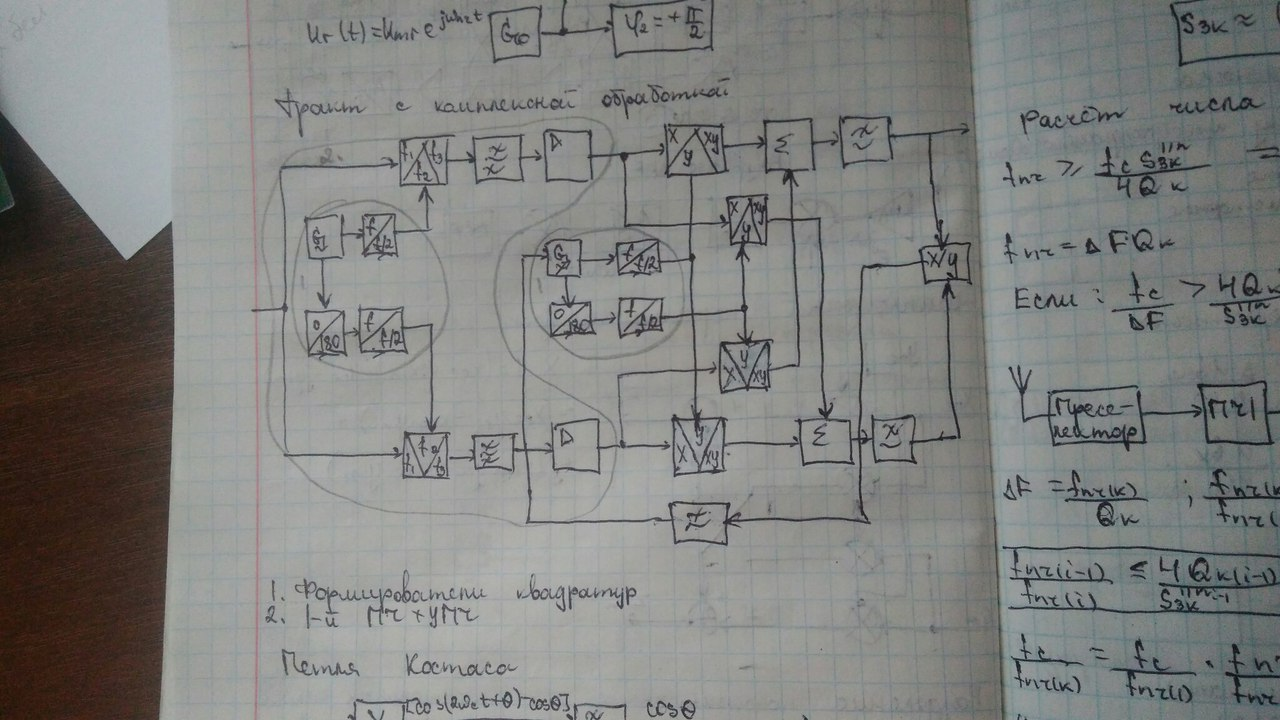 Uг(t)=Uмг e^jωг2t
Gго
φ2=+π/2
Тракт с комплексной обработкой
2.
f1 f3
f2
X XY
Y
Σ
G1
f
f/2
0
180
f
f/2
f1 f2
f3
G2
f
f/2
0
180
f
f/2
X XY
Y
Y
X XY
Y
X XY
Σ
X Y
1. Формирователи квадратур
2. 1-й ПЧ + УПЧ
Петля Костаса
[cos(2ωct+θ)-cosθ]
cosθ
Sзк ≈
Расчёт числа
fпч ≥ fc Sзк^1/n / 4Qк =
fпч = ΔFQк
Если: fc/ΔF > 4Qк / Sзк^1/n
Пресе-
лектор
ПЧ1
ΔF = fпч(к) / Qк ; fпч(к)
fпч(i-1) / fпч(i) ≤ 4Qк(i-1) / Sзк
fc / fпч(к) = fc / fпч(1) ·